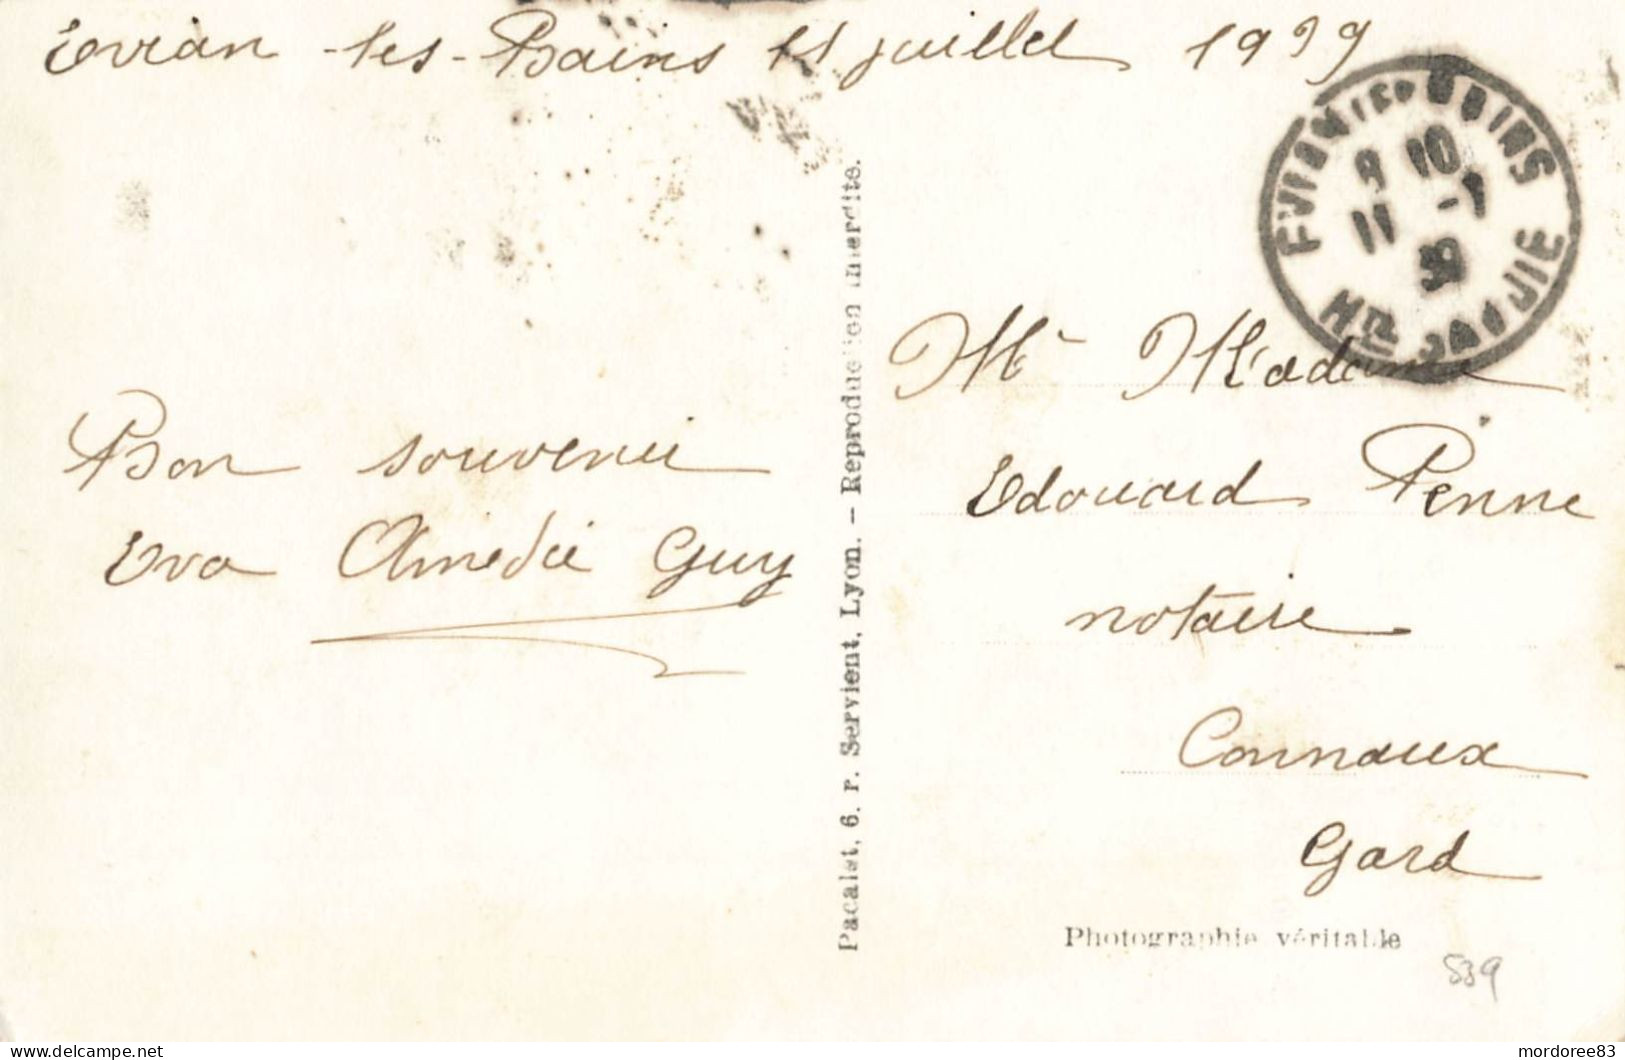 Evian-les-Bains 11 juillet 1939
EVIAN LES BAINS
9 10
11 -7
39
Hte SAVOIE
Bon souvenir
Eva Amédée Guy
Pacalet, 6. r. Servient, Lyon. - Reproduction interdite.
Mr Madame
Edouard Penne
notaire
Connaux
Gard
Photographie véritable
539
delcampe.net
mordoree83